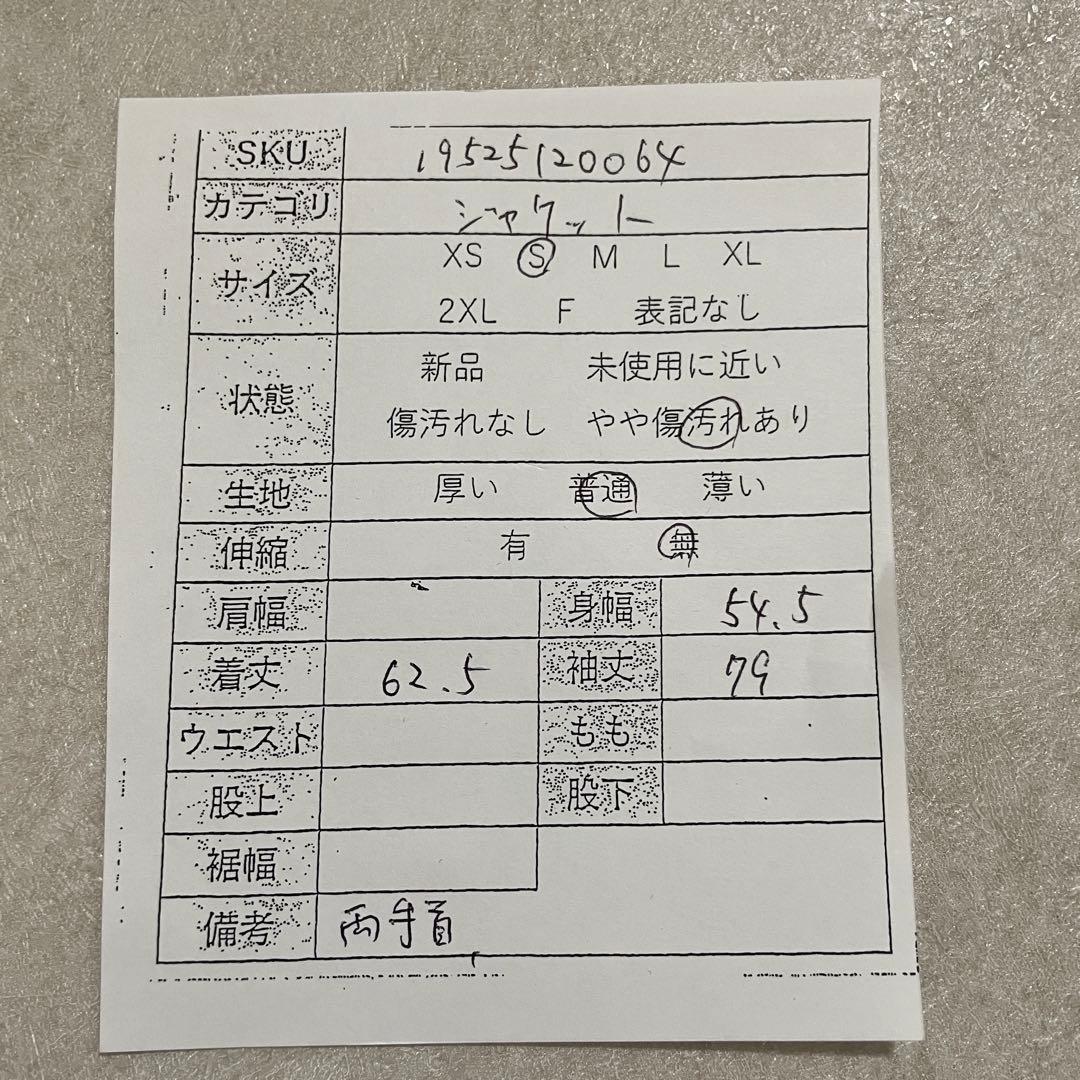 SKU 19525120064
カテゴリ ジャケット
サイズ XS S M L XL
2XL F 表記なし
状態 新品 未使用に近い
傷汚れなし やや傷汚れあり
生地 厚い 普通 薄い
伸縮 有 無
肩幅 身幅 54.5
着丈 62.5 袖丈 79
ウエスト もも
股上 股下
裾幅
備考 両手首